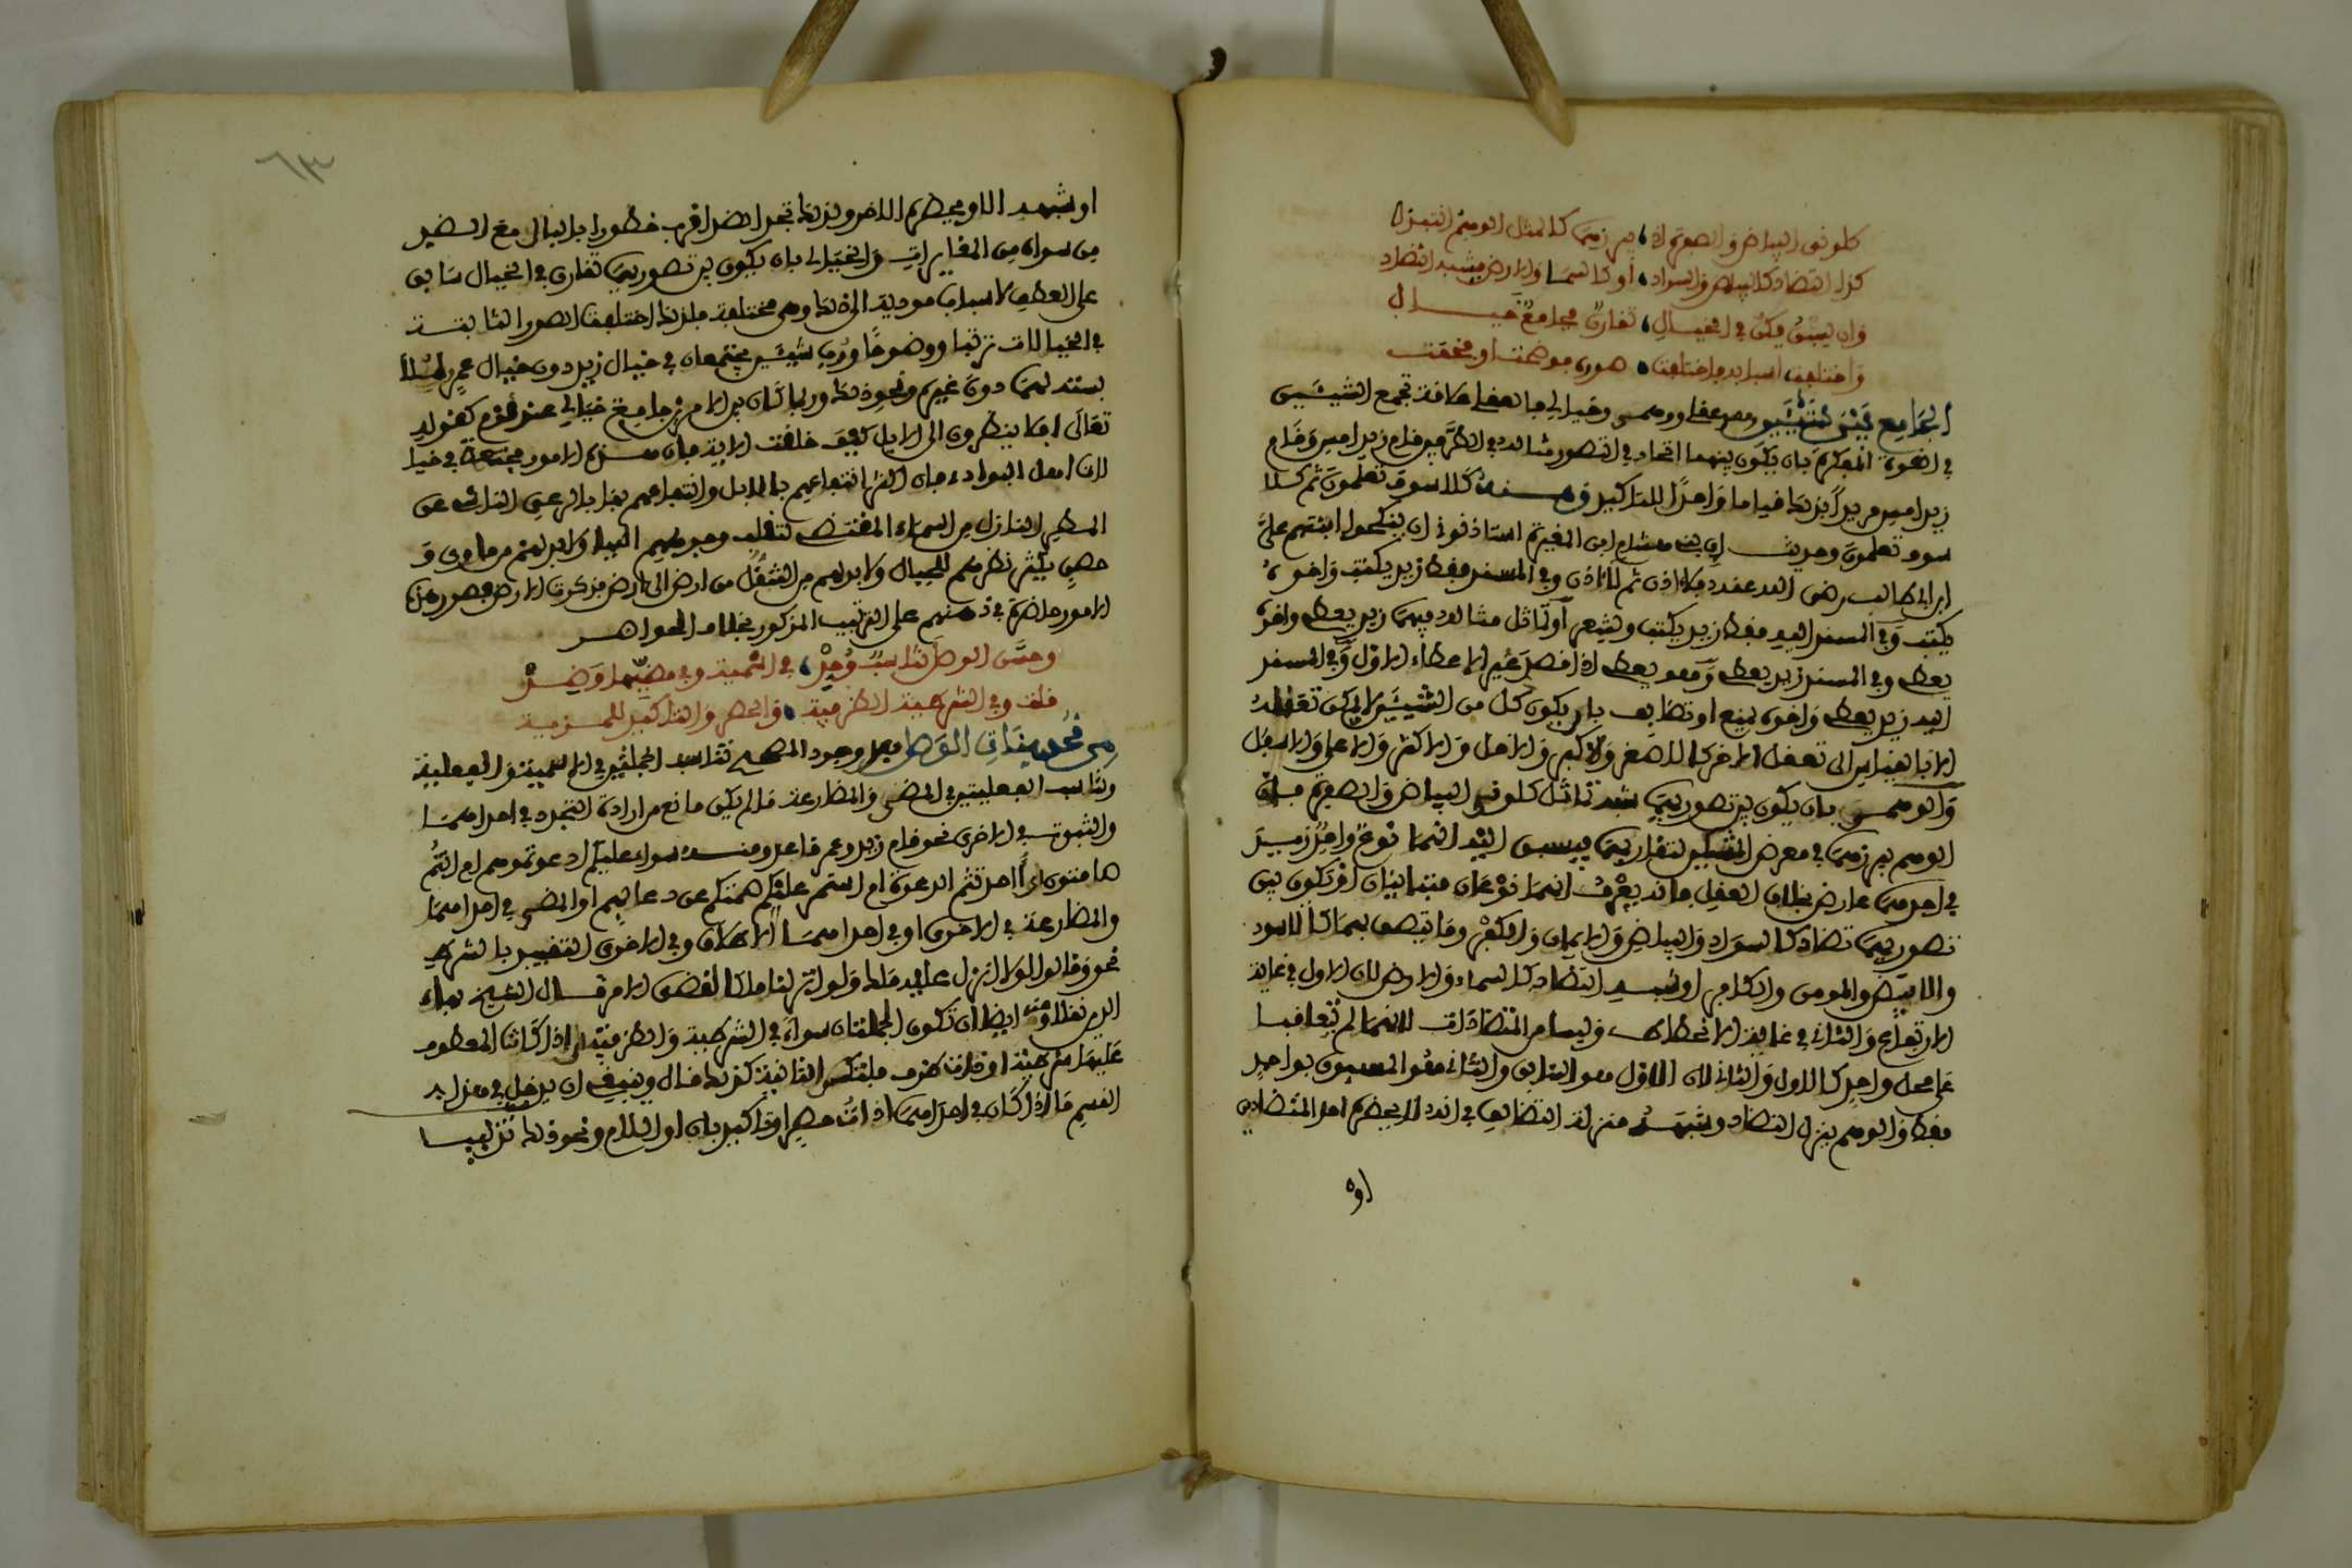 كلوني البياض والصفرة اذ، يبرزهما كالمثل الوهم انتبذ
كذا التضاد كالبياض والسواد، او كالسما والارض شبه التضاد
وان يسبق يكن في الخيال، تقارن فجامع خيال
واختلفت اسبابه فاختلفت، صوره فوضحت او خفت
الجامع بين الشيئين وهمي عقلي وخيالي فالعقلي علاقة تجمع الشيئين
في القوة المفكرة بان يكون بينهما اتحاد في التصور مثاله في الطرفين قام زيد امس وقام
زيد امس مريدا بذلك قياما واحدا للتاكيد ومنه كلا سوف تعلمون ثم كلا
سوف تعلمون وحديث ان بني هشام ابن المغيرة استاذنوني ان ينكحوا ابنتهم علي
ابن ابي طالب رضي الله عنه فلا اذن ثم لا اذن وفي المسند فقط زيد يكتب واخوه
يكتب وفي المسند اليه فقط زيد يكتب ويشعر او تماثل مثاله فيهما زيد يعطي واخوه
يعطي وفي المسند زيد يعطي وهو يعطي اذا قصد غير الاعطاء الاول وفي المسند
اليه زيد يعطي واخوه يمنع او تضايف بان يكون كل من الشيئين لا يمكن تعقله
الا بالقياس الى تعقل الاخر كالاصغر والاكبر والاقل والاكثر والاعلى والاسفل
والوهمي بان يكون بين تصوريهما شبه تماثل كلوني البياض والصفرة فان
الوهم يبرزهما في معرض المثلين لتقاربهما فيسبق اليه انهما نوع واحد زيد
في احدهما عارض بخلاف العقل فانه يعرف انهما نوعان متباينان او يكون بين
تصوريهما تضاد كالسواد والبياض والايمان والكفر وما يتصف بهما كالاسود
والابيض والمومن والكافر او شبه التضاد كالسماء والارض لان الاول في غاية
الارتفاع والثاني في غاية الانحطاط وليسا من المتضادات لانهما لم يتعاقبا
على محل واحد كالاول والثاني لان الاول هو السابق والثاني هو المسبوق بواحد
فقط والوهم ينزل التضاد وشبهه منزلة التضايف في انه لا يحضره احد المتضادين
او
٦٣
او شبهه الا ويحضره الاخر ولذلك تجد الضد اقرب خطورا بالبال مع الضد
من سواه من المغايرات والخيالي بان يكون بين تصوريهما تقارن في الخيال سابق
على العطف لاسباب مودية الى ذلك وهي مختلفة فلذلك اختلفت الصور الثابتة
في الخيالات ترتبا ووضوحا ورب شيئين يجتمعان في خيال زيد دون خيال عمر
دون غيره ونحو ذلك وربما كان بين الامرين جامع خيالي عند قوم كقوله
تعالى افلا ينظرون الى الابل كيف خلقت الاية فان هذه الامور مجتمعة في خيال
لان اهل البوادي فان اكثر انتفاعهم بالابل وانتفاعهم بها بالرعي الناشي عن
المطر النازل من السماء المقتضي لتقلب وجوههم اليها ولا بد لهم من ماوى و
حصن يكثر نظرهم للجبال ولا بد لهم من التنقل من ارض الى ارض فذكرت الارض فصور هذه
الامور حاضرة في ذهنهم على الترتيب المذكور بخلاف الحواضر
وحسن الوصل تناسب وجد، في اسمية وفي مضيها وضد
قلت وفي الشرطية الظرفية، والحصر والتاكيد للمزية
من محسنات الوصل بعد وجود المصحح تناسب الجملتين في الاسمية والفعلية
وتناسب الفعليتين في المضي والمضارعة ما لم يكن مانع من ارادة التجدد في احداهما
والثبوت في الاخرى نحو قام زيد وعمر قاعد ومنه سواء عليكم ادعوتموهم ام انتم
صامتون اي احدثتم الدعوة ام استمر عليكم صمتكم عن دعائهم او المضي في احداهما
والمضارعة في الاخرى او في احداهما الاطلاق وفي الاخرى التقييد بالشرط
نحو وقالوا لولا انزل عليه ملك ولو انزلنا ملكا لقضي الامر قال الشيخ بهاء
الدين ايضا ان تكون الجملتان سواء في الشرطية والظرفية اي اذا كانتا المعطوف
عليها شرطية او ذات ظرف فلتكن الثانية كذلك قال وينبغي ان يدخل في هذا
القسم ما اذا كان في احداهما اداة حصر او تاكيد بان او اللام ونحو ذلك تنبيه